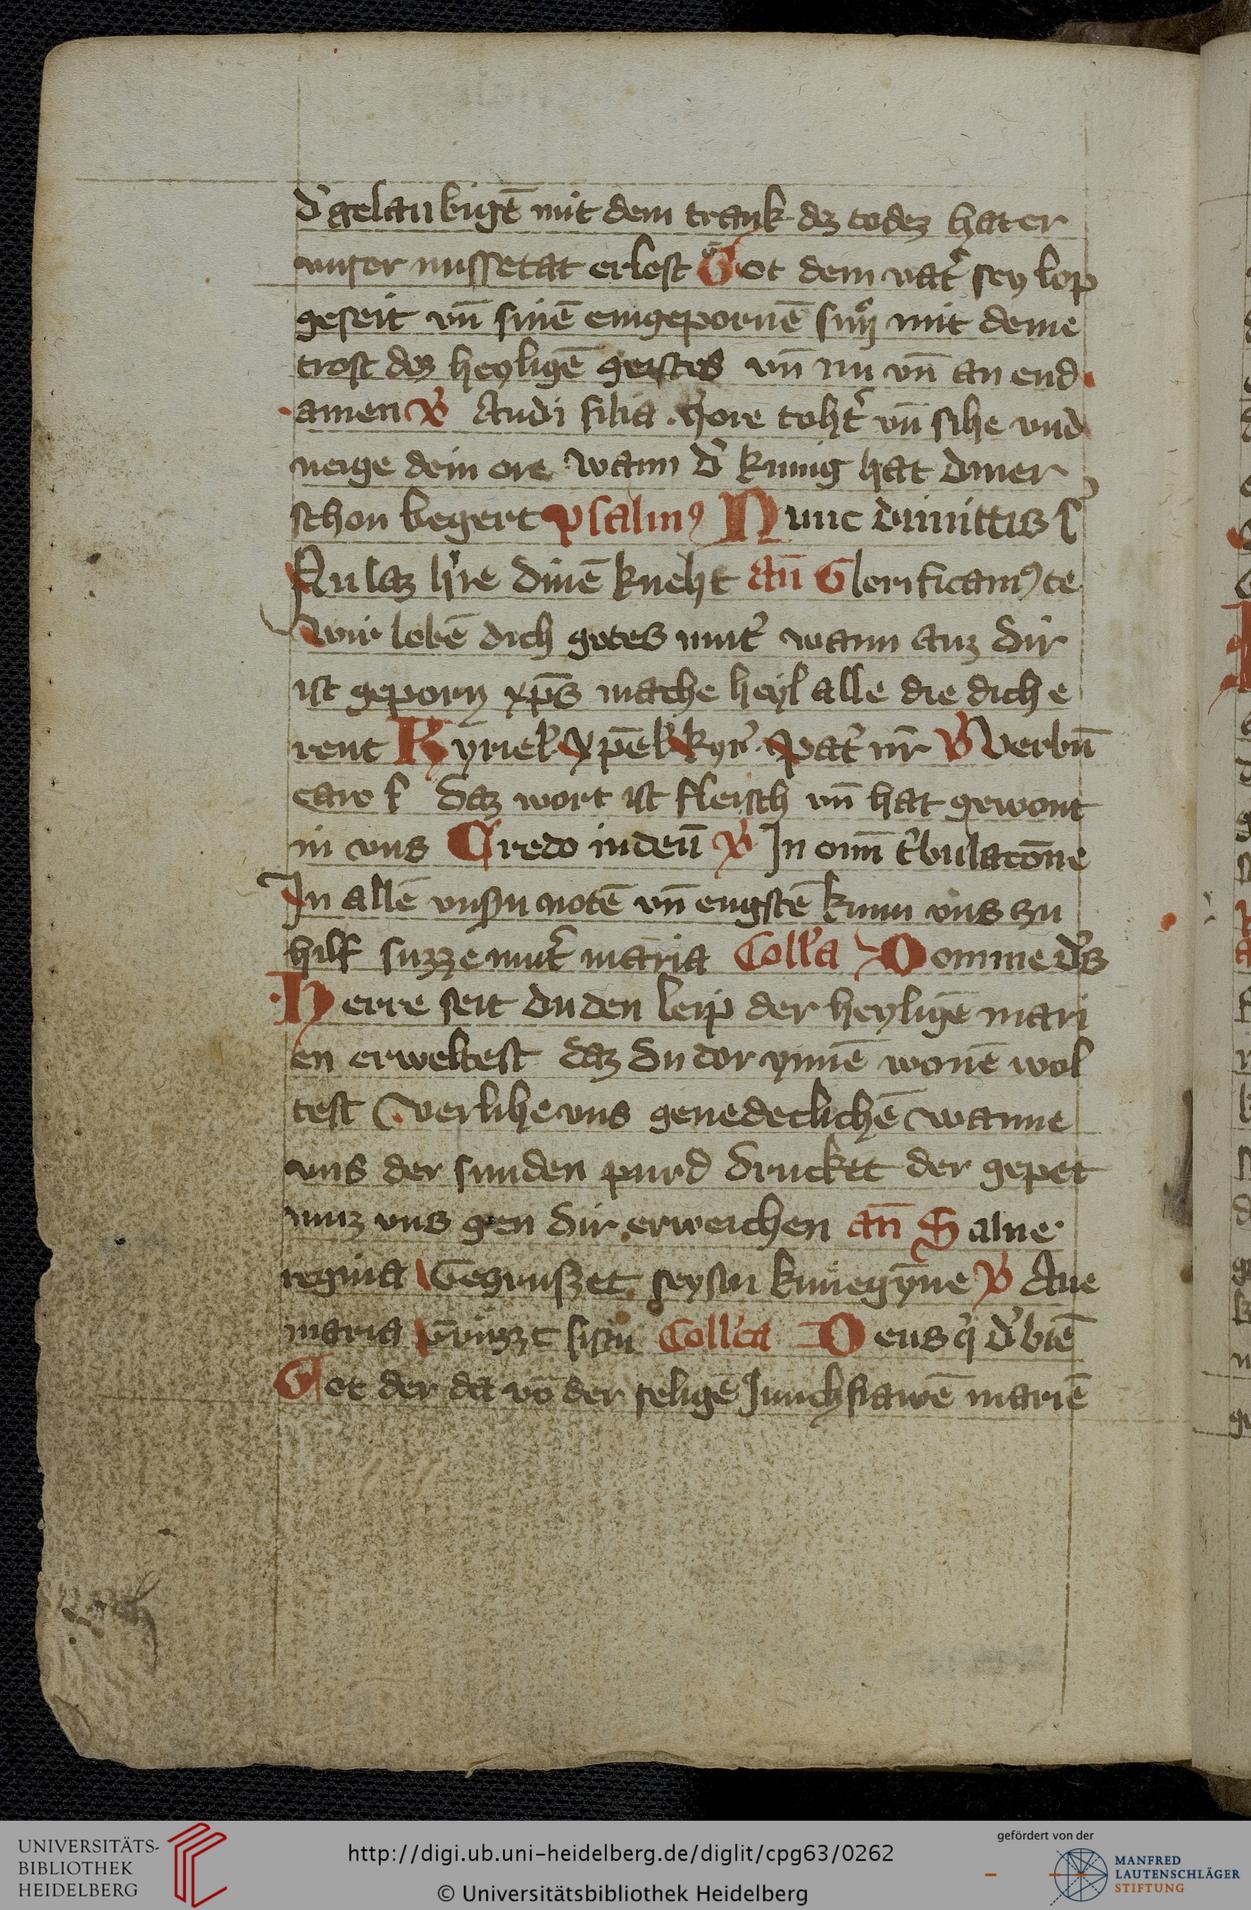 d' gelaubigē mit dem trank dez todez hat er
vnser missetat erlost Got dem vat' sey lop
geseit vn̄ sinē eingepornē sun mit deme
trost dez heyligē geistes vn̄ nu vn̄ an end
amen V Audi filia . hore toht' vn̄ sihe vnd
neige dein ore wann d' kunig hat diner
schon begert psalmꝰ Nunc dimittis s'
Nu laz h're dinē kneht an̄ Glorificamꝰ te
wir lobē dich gotes mut' wann auz dir
ist geporn xp̄s mache heyl alle die dich e
rent Kyriel' xp̄el' kyr' pat' nr̄ V Verbū
caro f daz wort ist fleisch vn̄ hat gewont
in vns Credo in deū V In om̄i t'bulacōne
In allē vnsn notē vn̄ engstē kum vns zu
hilf suzze mut' maria Coll'a Domine d's
Herre seit du den leip der heyligē mari
en erweltest daz du dor ynnē wonē wol
test verlihe vns genedeclichē wanne
vns der sunden purd drucket der gepet
muz vns gen dir erweichen an̄ Salue
regina Gegruszet seystu kuniegȳne V Aue
maria sistu Coll'ca Deus q' d' btē
Got der da vō der seligē Junchfrawē mariē
UNIVERSITÄTS-
BIBLIOTHEK
HEIDELBERG
http://digi.ub.uni-heidelberg.de/diglit/cpg63/0262
© Universitätsbibliothek Heidelberg
gefördert von der
MANFRED
LAUTENSCHLÄGER
STIFTUNG